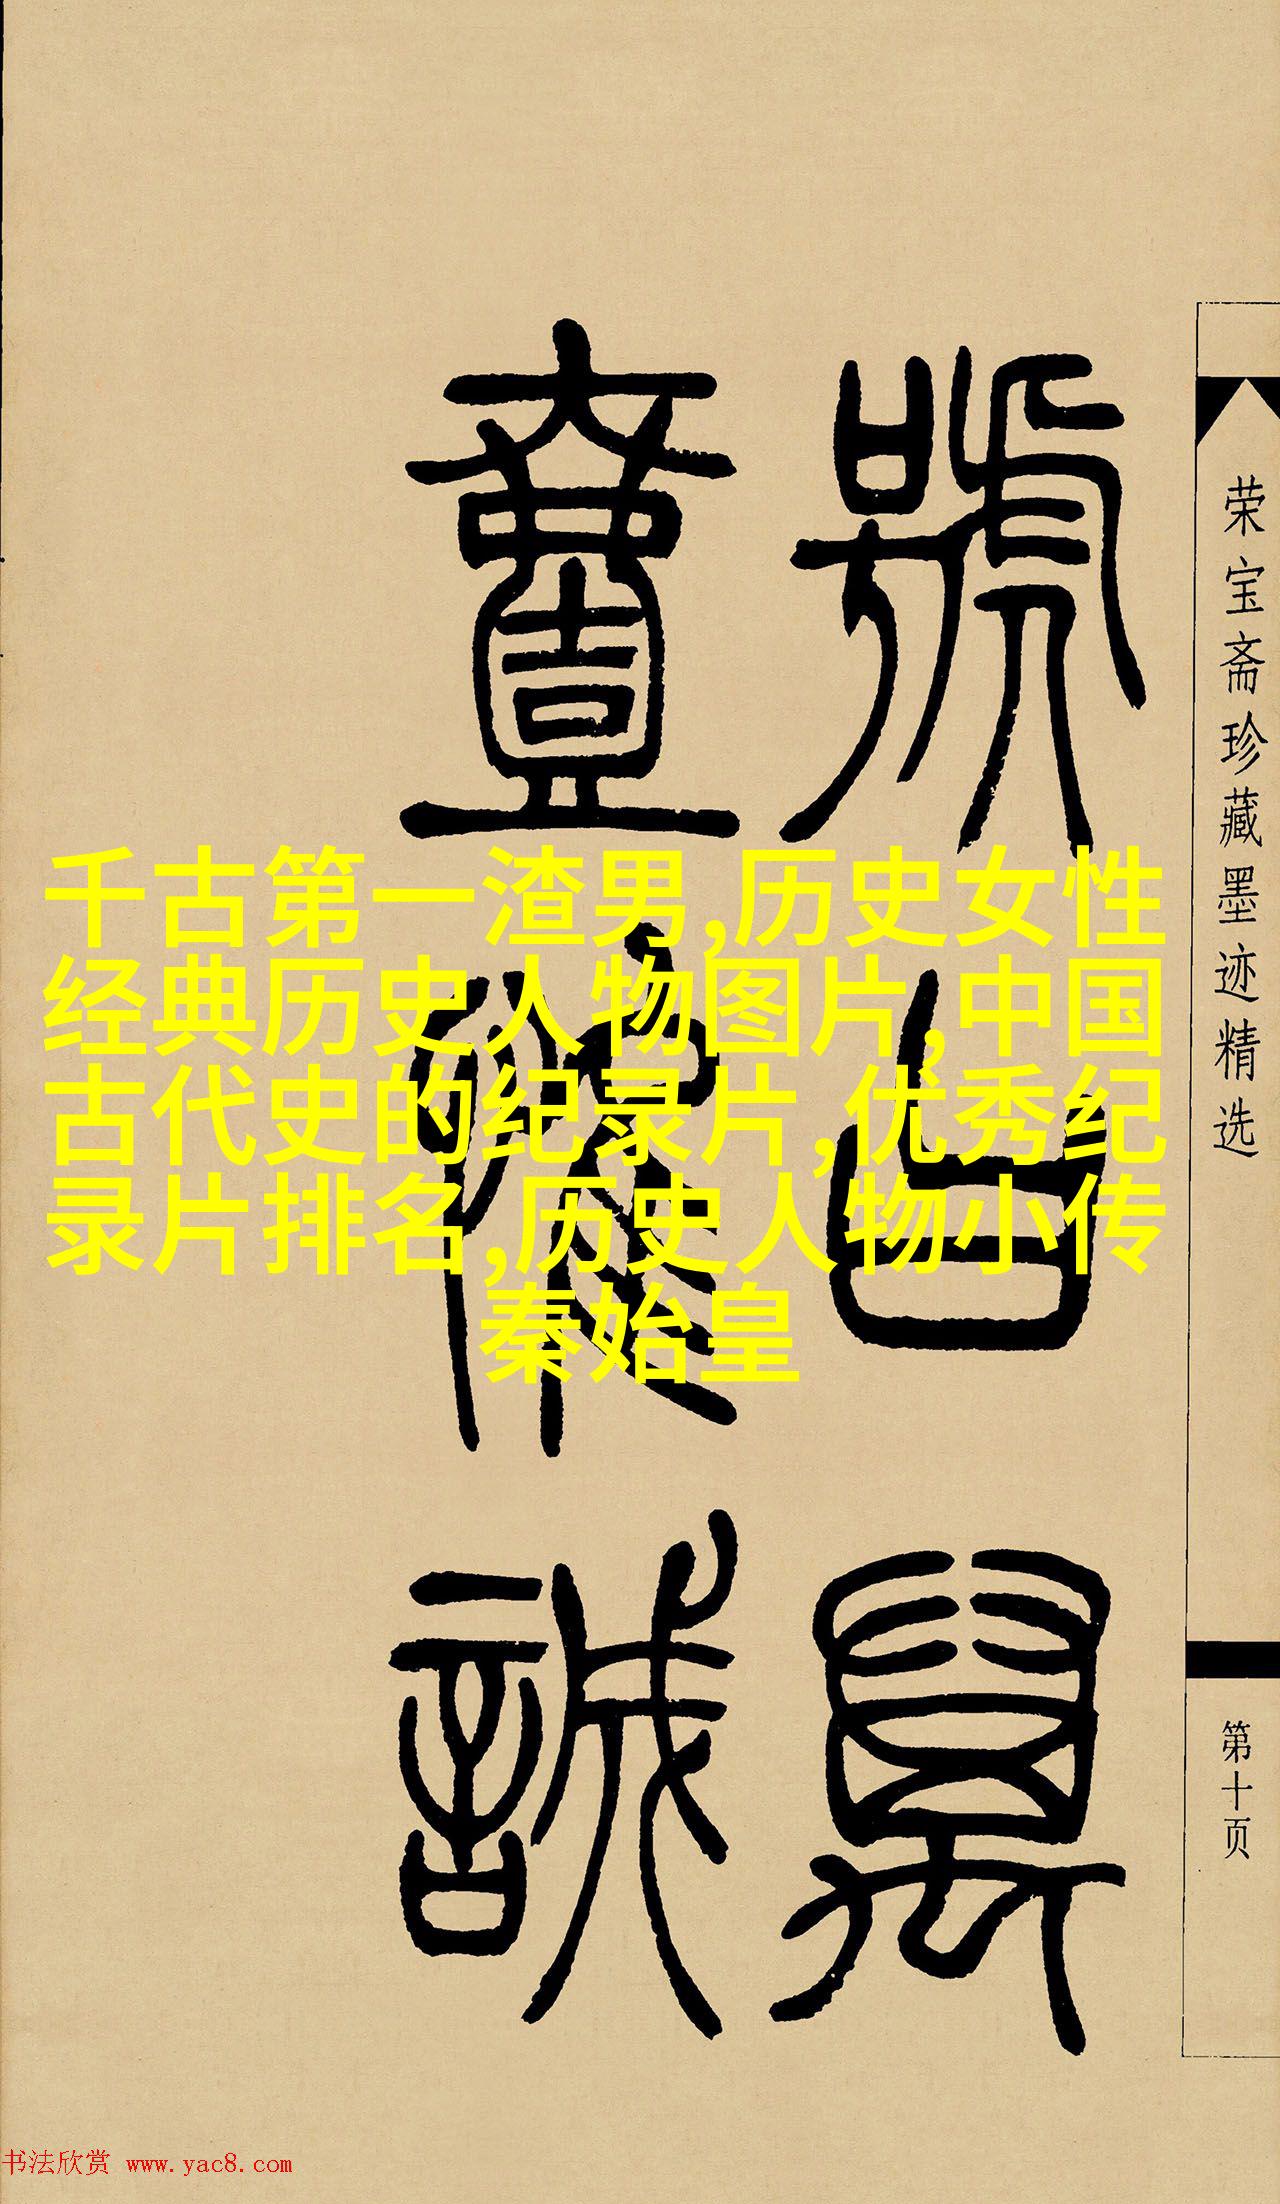 千古第一渣男,历史女性
经典历史人物图片,中国
古代史的纪录片,优秀纪
录片排名,历史人物小传
秦始皇
號
誠
荣宝斋珍藏墨迹精选
第十页
书法欣赏 www.yac8.com